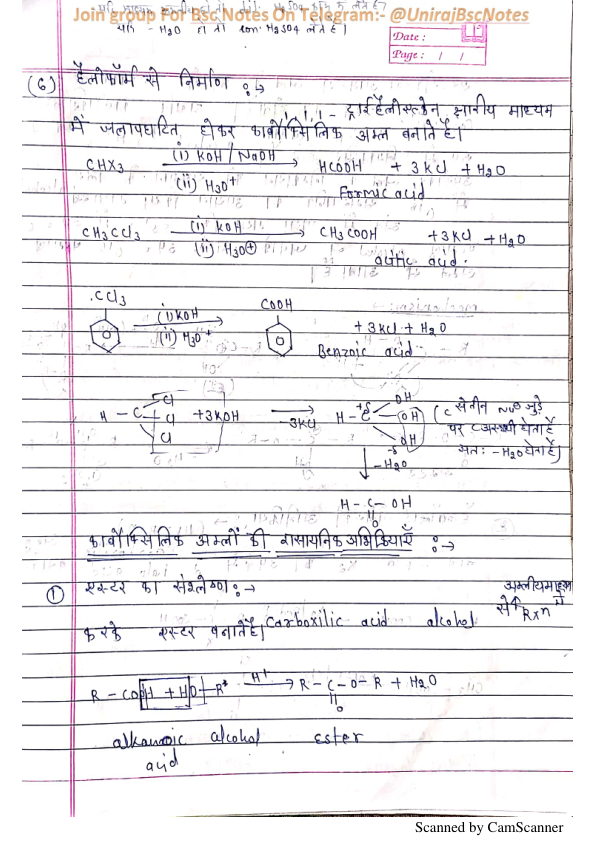 Join group For Bsc Notes On Telegram:- @UnirajBscNotes
यदि - H2O हो तो con. H2SO4 लेते हैं।
Date :
Page : / /
(6) हैलोफॉर्म से निर्माण :→
1,1,1 - ट्राईहैलोएल्केन, क्षारीय माध्यम
में जलापघटित होकर कार्बोक्सिलिक अम्ल बनाते है।
CHX3 (i) KOH/NaOH (ii) H3O+ → HCOOH + 3KCl + H2O
Formic acid
CH3CCl3 (i) KOH (ii) H3O⊕ → CH3COOH + 3KCl + H2O
acitic acid.
CCl3 (i) KOH (ii) H3O+ → COOH + 3KCl + H2O
Benzoic acid
H - C Cl Cl Cl + 3KOH → -3KCl H - C OH OH OH (C से तीन Nu⊖ जुड़े
पर C अस्थायी होता है
अतः -H2O होता है)
↓ -H2O
H - C - OH
O
कार्बोक्सिलिक अम्लों की रासायनिक अभिक्रियाएँ :→
① एस्टर का संश्लेषण :→ अम्लीय माध्यम में
Carboxilic acid alcohol से Rxn
करके एस्टर बनाते हैं।
R - COOH + HO - R* H+ → R - C - O - R + H2O
O
alkanoic alcohol ester
acid
Scanned by CamScanner